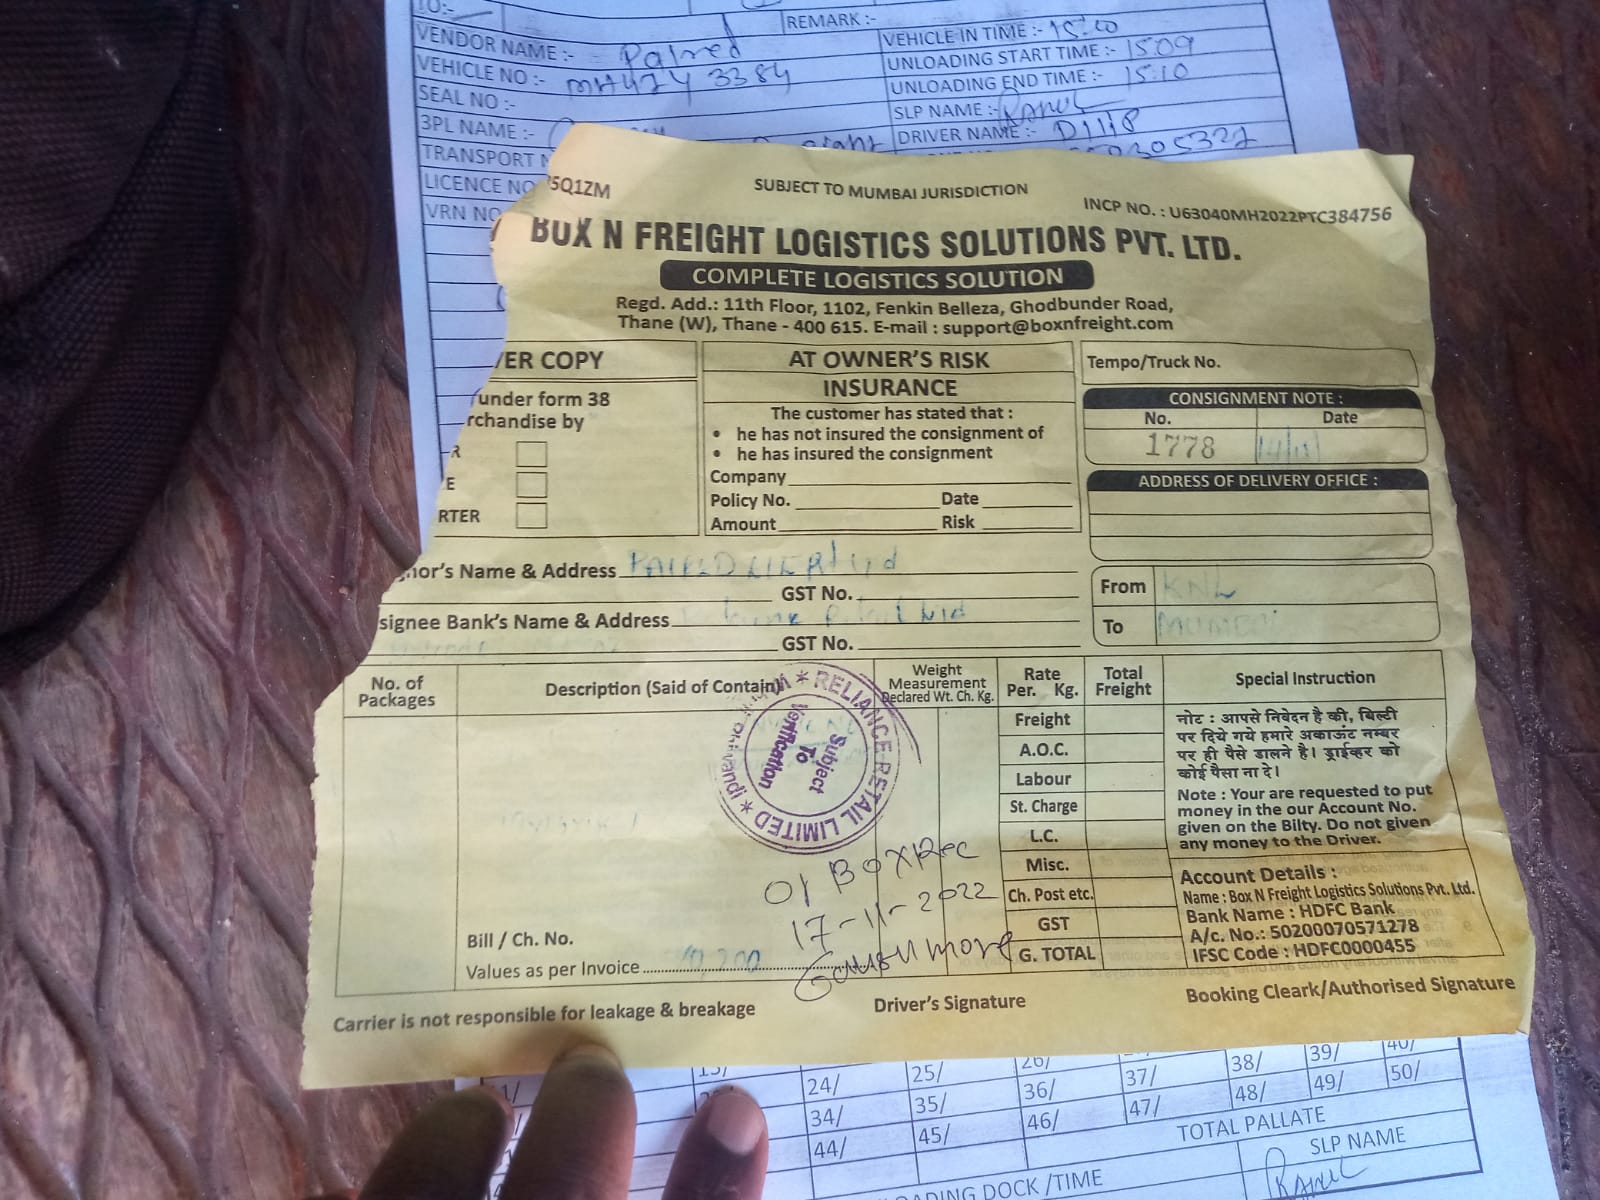 TO:-
REMARK :-
VENDOR NAME :- Palred
VEHICLE NO :- MH47Y 3384
SEAL NO :-
3PL NAME :-
TRANSPORT
LICENCE NO
VRN NO
VEHICLE IN TIME :-
UNLOADING START TIME :- 15:09
UNLOADING END TIME :- 15:10
SLP NAME :- Rahul
DRIVER NAME :-
5Q1ZM
SUBJECT TO MUMBAI JURISDICTION
INCP NO. : U63040MH2022PTC384756
BOX N FREIGHT LOGISTICS SOLUTIONS PVT. LTD.
COMPLETE LOGISTICS SOLUTION
Regd. Add.: 11th Floor, 1102, Fenkin Belleza, Ghodbunder Road,
Thane (W), Thane - 400 615. E-mail : support@boxnfreight.com
VER COPY
under form 38
rchandise by
R
E
RTER
AT OWNER'S RISK
INSURANCE
The customer has stated that :
• he has not insured the consignment of
• he has insured the consignment
Company
Policy No. Date
Amount Risk
Tempo/Truck No.
CONSIGNMENT NOTE :
No. Date
1778
ADDRESS OF DELIVERY OFFICE :
nor's Name & Address
GST No.
signee Bank's Name & Address
GST No.
From KNL
To MUMBAI
No. of Packages
Description (Said of Contain)
Weight Measurement
Declared Wt. Ch. Kg.
Rate Per. Kg.
Total Freight
Special Instruction
Freight
A.O.C.
Labour
St. Charge
L.C.
Misc.
Ch. Post etc.
GST
G. TOTAL
नोट : आपसे निवेदन है की, बिल्टी
पर दिये गये हमारे अकाऊंट नम्बर
पर ही पैसे डालने है। ड्राईव्हर को
कोई पैसा ना दे।
Note : Your are requested to put
money in the our Account No.
given on the Bilty. Do not given
any money to the Driver.
Account Details :
Name : Box N Freight Logistics Solutions Pvt. Ltd.
Bank Name : HDFC Bank
A/c. No.: 50200070571278
IFSC Code : HDFC0000455
RELIANCE RETAIL LIMITED
Subject
To
Verification
01 BOX Rec
17-11-2022
Bill / Ch. No.
Values as per Invoice
Carrier is not responsible for leakage & breakage
Driver's Signature
Booking Cleark/Authorised Signature
24/ 25/ 26/ 38/ 39/ 40/
34/ 35/ 36/ 37/ 48/ 49/ 50/
44/ 45/ 46/ 47/
TOTAL PALLATE
SLP NAME
ADING DOCK /TIME
Rahul